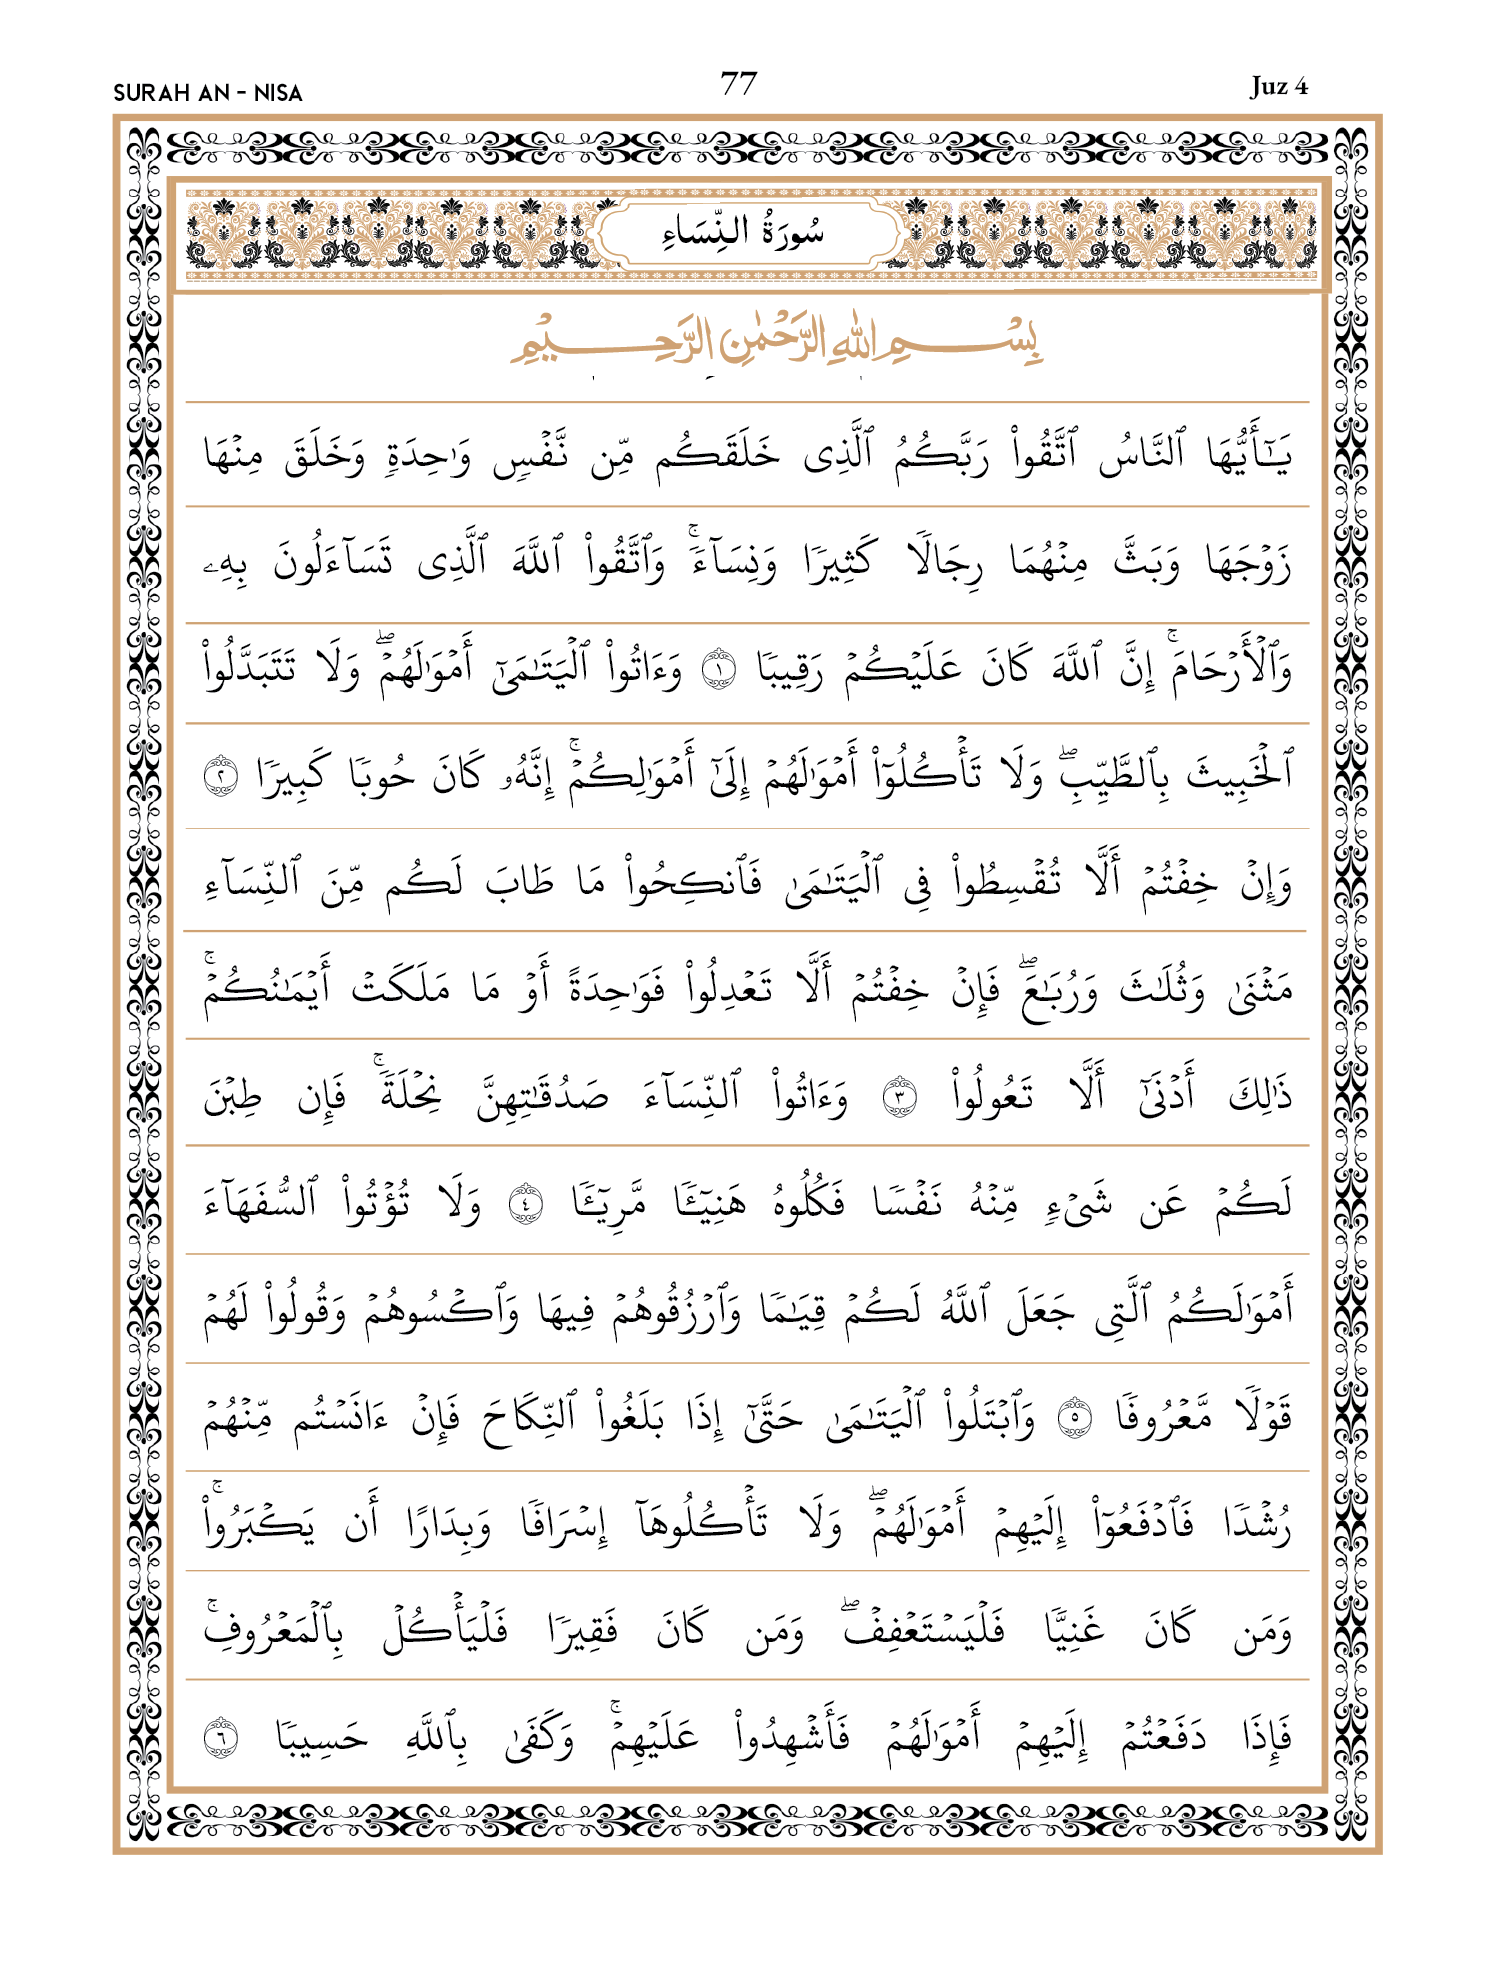 SURAH AN - NISA 77 Juz 4
سُورَةُ النِّسَاءِ
بِسْمِ اللهِ الرَّحْمٰنِ الرَّحِيْمِ
يَـٰٓأَيُّهَا ٱلنَّاسُ ٱتَّقُوا۟ رَبَّكُمُ ٱلَّذِى خَلَقَكُم مِّن نَّفْسٍۢ وَٰحِدَةٍۢ وَخَلَقَ مِنْهَا
زَوْجَهَا وَبَثَّ مِنْهُمَا رِجَالًۭا كَثِيرًۭا وَنِسَآءًۭ ۚ وَٱتَّقُوا۟ ٱللَّهَ ٱلَّذِى تَسَآءَلُونَ بِهِۦ
وَٱلْأَرْحَامَ ۚ إِنَّ ٱللَّهَ كَانَ عَلَيْكُمْ رَقِيبًۭا ١ وَءَاتُوا۟ ٱلْيَتَـٰمَىٰٓ أَمْوَٰلَهُمْ ۖ وَلَا تَتَبَدَّلُوا۟
ٱلْخَبِيثَ بِٱلطَّيِّبِ ۖ وَلَا تَأْكُلُوٓا۟ أَمْوَٰلَهُمْ إِلَىٰٓ أَمْوَٰلِكُمْ ۚ إِنَّهُۥ كَانَ حُوبًۭا كَبِيرًۭا ٢
وَإِنْ خِفْتُمْ أَلَّا تُقْسِطُوا۟ فِى ٱلْيَتَـٰمَىٰ فَٱنكِحُوا۟ مَا طَابَ لَكُم مِّنَ ٱلنِّسَآءِ
مَثْنَىٰ وَثُلَـٰثَ وَرُبَـٰعَ ۖ فَإِنْ خِفْتُمْ أَلَّا تَعْدِلُوا۟ فَوَٰحِدَةً أَوْ مَا مَلَكَتْ أَيْمَـٰنُكُمْ ۚ
ذَٰلِكَ أَدْنَىٰٓ أَلَّا تَعُولُوا۟ ٣ وَءَاتُوا۟ ٱلنِّسَآءَ صَدُقَـٰتِهِنَّ نِحْلَةًۭ ۚ فَإِن طِبْنَ
لَكُمْ عَن شَىْءٍۢ مِّنْهُ نَفْسًۭا فَكُلُوهُ هَنِيٓـًۭٔا مَّرِيٓـًۭٔا ٤ وَلَا تُؤْتُوا۟ ٱلسُّفَهَآءَ
أَمْوَٰلَكُمُ ٱلَّتِى جَعَلَ ٱللَّهُ لَكُمْ قِيَـٰمًۭا وَٱرْزُقُوهُمْ فِيهَا وَٱكْسُوهُمْ وَقُولُوا۟ لَهُمْ
قَوْلًۭا مَّعْرُوفًۭا ٥ وَٱبْتَلُوا۟ ٱلْيَتَـٰمَىٰ حَتَّىٰٓ إِذَا بَلَغُوا۟ ٱلنِّكَاحَ فَإِنْ ءَانَسْتُم مِّنْهُمْ
رُشْدًۭا فَٱدْفَعُوٓا۟ إِلَيْهِمْ أَمْوَٰلَهُمْ ۖ وَلَا تَأْكُلُوهَآ إِسْرَافًۭا وَبِدَارًا أَن يَكْبَرُوا۟ ۚ
وَمَن كَانَ غَنِيًّۭا فَلْيَسْتَعْفِفْ ۖ وَمَن كَانَ فَقِيرًۭا فَلْيَأْكُلْ بِٱلْمَعْرُوفِ ۚ
فَإِذَا دَفَعْتُمْ إِلَيْهِمْ أَمْوَٰلَهُمْ فَأَشْهِدُوا۟ عَلَيْهِمْ ۚ وَكَفَىٰ بِٱللَّهِ حَسِيبًۭا ٦